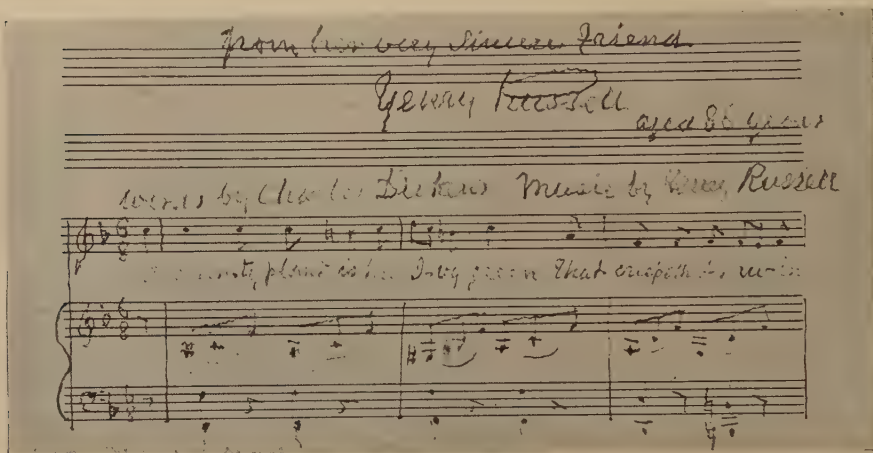 from her very sincere Friend
Henry Russell
aged 86 years
words by Charles Dickens Music by Henry Russell
plant is the Ivy green That creepeth o'er ruin